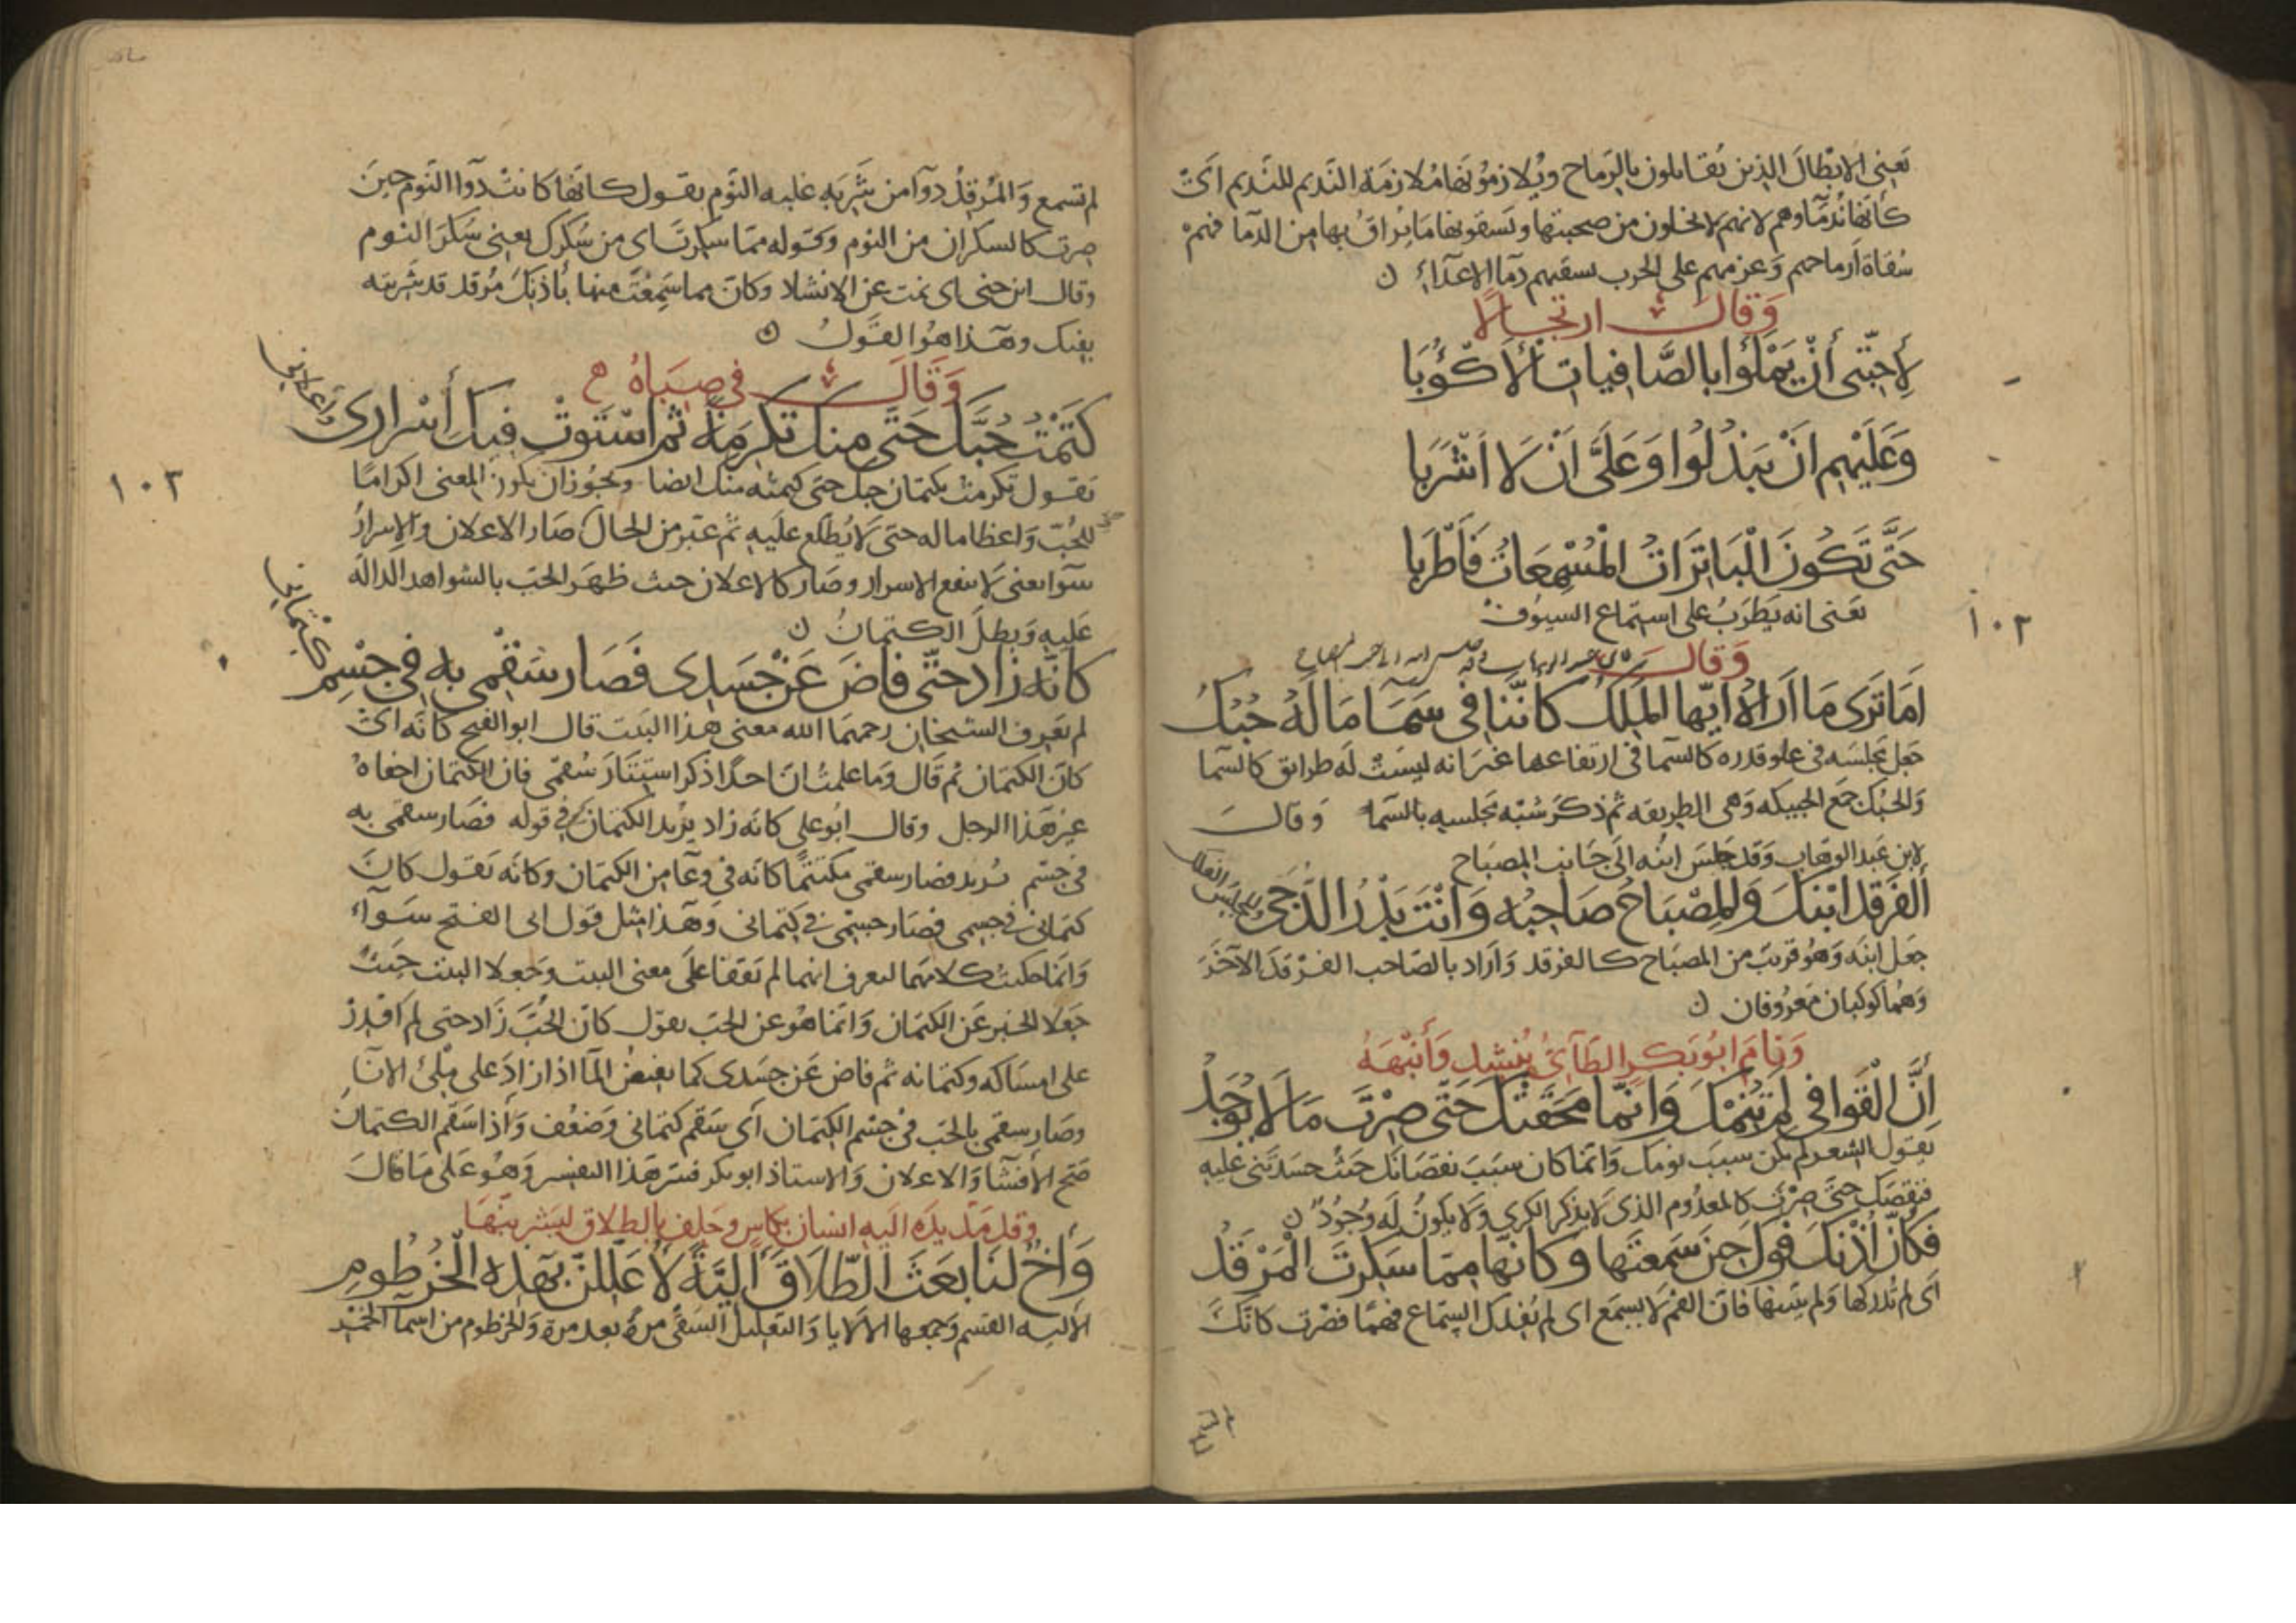 يعني الابطال الذين يقاتلون بالرماح ويلازمونها ملازمة النديم للنديم اي
كانها ندماوهم لانهم لا يخلون من صحبتها ويسقونها ما يراق بها من الدما فهم
سقاة ارماحهم وعزمهم على الحرب يسقيهم دما الاعداء ن
وقال ارتجالا
لأحبتي أن يملؤا بالصافيات الأكؤبا
وعليهم ان يبذلوا وعلي ان لا اشربا
حتى تكون الباترات المسمعات فاطربا
يعني انه يطرب على استماع السيوف
١٠٢
وقال
اما ترى ما اراه ايها الملك كاننا في سما ما له حبك
جعل مجلسه في علو قدره كالسما في ارتفاعها غير انه ليست له طرايق كالسما
والحبك جمع الحبيكه وهي الطريقه ثم ذكر شبه مجلسه بالسما وقال
لابن عبد الوهاب وقد جلس ابنه الى جانب المصباح
الفرقد ابنك والمصباح صاحبه وانت بدر الدجى والمجلس الفلك
جعل ابنه وهو قريب من المصباح كالفرقد واراد بالصاحب الفرقد الآخر
وهما كوكبان معروفان ن
ونام ابو بكر الطآئي ينشد وأنبهه
أن القوافي لم تنمك وانما محقتك حتى صرت ما لا يوجد
يقول الشعر لم يكن سبب نومك وانما كان سبب نقصانك حيث حسدتني عليه
فنقصك حتى صرت كالمعدوم الذي لا يذكر الكرى ولا يكون له وجود ن
فكأن أذنك فوك حين سمعتها وكانها مما سكرت المرقد
اي لم تدركها ولم بها فان الفم لا يسمع اى لم يفدك السماع فهما فصرت كانك
لم تسمع والمرقد دوآ من شربه غلبه النوم يقول كانها كانت دوآ النوم حين
صرت كالسكران من النوم وقوله مما سكرت اى من سكرك يعني سكر النوم
وقال ابن جني اى نمت عن الانشاد وكان مما سمعت منها بأذنك مرقد قد شربته
بفيك وهذا هو القول ن
وقال في صباه
كتمت حبك حتى منك تكرمة ثم استوى فيك أسراري وإعلاني
١٠٣
يقول تكرمت بكتمان حبك حتى كتمته منك ايضا ويجوز ان يكون المعنى اكراما
للحب واعظاما له حتى لا يطلع عليه ثم عبر من الحال صار الاعلان والاسرار
سوا يعنى لا ينفع الاسرار وصار كالاعلان حيث ظهر الحب بالشواهد الداله
عليه وبطل الكتمان ن
كانه زاد حتى فاض عن جسدى فصار سقمي به في جسم كتماني
لم يعرف الشيخان رحمهما الله معنى هذا البيت قال ابو الفتح كانه اي
كان الكتمان ثم قال وما علمت ان احدا ذكر استتار سقمي فان الكتمان اخفاه
غير هذا الرجل وقال ابو على كانه زاد يريد الكتمان في قوله فصار سقمي به
في جسم يريد فصار سقمي مكتتما كانه في وعآ من الكتمان وكانه يقول كان
كتماني في جسمي فصار جسمي في كتماني وهذا مثل قول ابى الفتح سوآء
وانما حكيت كلامهما ليعرف انهما لم يقفا على معنى البيت وجعلا البيت حيث
جعلا الخبر عن الكتمان وانما هو عن الحب يقول كان الحب زاد حتى لم اقدر
على امساكه وكتمانه ثم فاض عن جسدى كما يفيض المآ اذا زاد على ملئ الانآ
وصار سقمي بالحب في جسم الكتمان أي سقم كتماني وضعف واذا سقم الكتمان
صح الافشا والاعلان والاستاذ ابو بكر فسر هذا التفسير وهو على ما قال
وقد مد يده اليه انسان بكاس وحلف بالطلاق ليشربنها
وأخ لنا بعث الطلاق ألية لأعللن بهذه الخرطوم
الاليه القسم وجمعها الالايا والتعليل السقي مرة بعد مرة والخرطوم من اسمآ الخمر